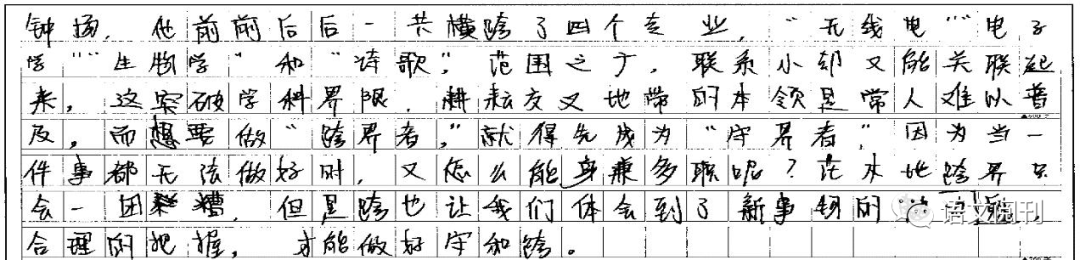 钟扬，他前前后后一共横跨了四个专业，“无线电”“电子
学”“生物学”和“诗歌”，范围之广，联系小却又能关联起
来，这突破学科界限，耕耘交叉地带的本领是常人难以普
及，而想要做“跨界者”，就得先成为“守界者”，因为当一
件事都无法做好时，又怎么能身兼多职呢？茫木地跨界只
会一团糟，但是跨也让我们体会到了新事物的
合理的把握，才能做好守和跨。
语文周刊